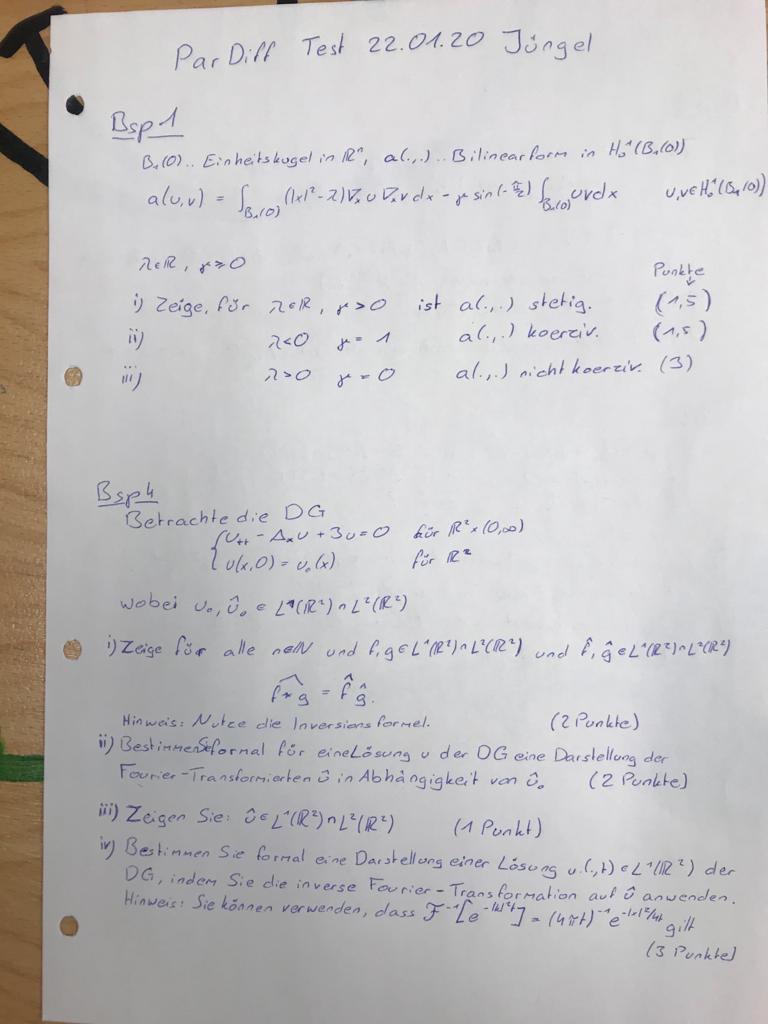 ParDiff Test 22.01.20 Jüngel
Bsp 1
B₁(0).. Einheitskugel in ℝⁿ, a(.,.).. Bilinearform in H₀¹(B₁(0))
a(u,v) = ∫_{B₁(0)} (|x|²-λ)∇ₓu ∇ₓv dx - γ sin(-π/2) ∫_{B₁(0)} uvdx u,v∈H₀¹(B₁(0))
λ∈ℝ, γ≥0
Punkte
i) Zeige, für λ∈ℝ, γ>0 ist a(.,.) stetig. (1,5)
ii) λ<0 γ=1 a(.,.) koerziv. (1,5)
iii) λ>0 γ=0 a(.,.) nicht koerziv. (3)
Bsp 4
Betrachte die DG
{ u_tt - Δₓu + 3u = 0 für ℝ²×(0,∞)
u(x,0) = u₀(x) für ℝ²
wobei u₀, û₀ ∈ L¹(ℝ²)∩L²(ℝ²)
i) Zeige für alle n∈ℕ und f,g∈L¹(ℝ²)∩L²(ℝ²) und f̂, ĝ∈L¹(ℝ²)∩L²(ℝ²)
\widehat{f*g} = f̂ ĝ.
Hinweis: Nutze die Inversionsformel. (2 Punkte)
ii) Bestimmen Sie formal für eine Lösung u der DG eine Darstellung der
Fourier-Transformierten û in Abhängigkeit von û₀ (2 Punkte)
iii) Zeigen Sie: û∈L¹(ℝ²)∩L²(ℝ²) (1 Punkt)
iv) Bestimmen Sie formal eine Darstellung einer Lösung u(.,t)∈L¹(ℝ²) der
DG, indem Sie die inverse Fourier-Transformation auf û anwenden.
Hinweis: Sie können verwenden, dass F⁻¹[e^{-|k|²t}] = (4πt)⁻¹ e^{-|x|²/4t} gilt
(3 Punkte)